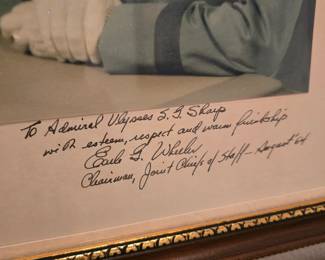 To Admiral Ulysses S. G. Sharp
with esteem, respect and warm friendship
Earle G. Wheeler
Chairman, Joint Chiefs of Staff - August '64